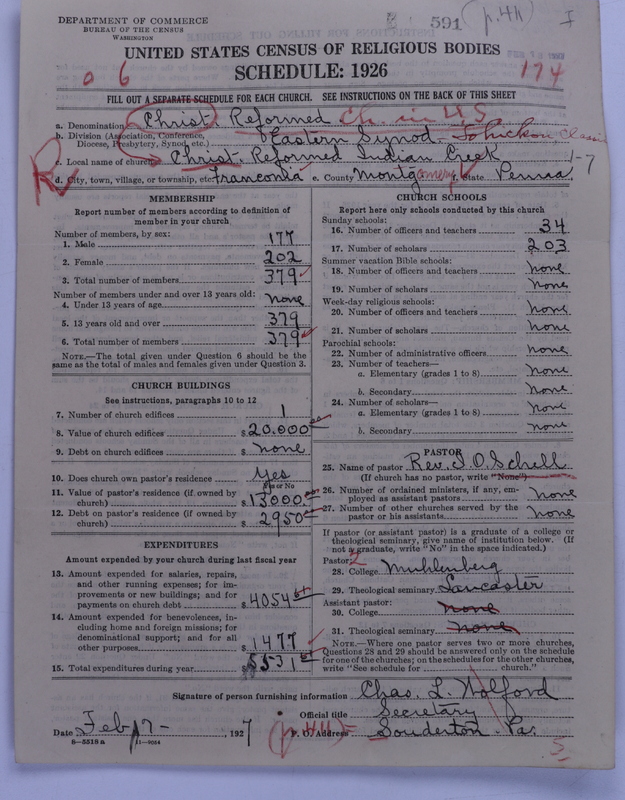 DEPARTMENT OF COMMERCE
BUREAU OF THE CENSUS
WASHINGTON
591
(p.4h)
I
UNITED STATES CENSUS OF RELIGIOUS BODIES
SCHEDULE: 1926
6
174
FILL OUT A SEPARATE SCHEDULE FOR EACH CHURCH. SEE INSTRUCTIONS ON THE BACK OF THIS SHEET
a. Denomination Christ Reformed Ch. in U.S
b. Division (Association, Conference, Diocese, Presbytery, Synod, etc.) Eastern Synod. Tohickon Classis
c. Local name of church Christ Reformed Indian Creek 1-7
d. City, town, village, or township, etc. Franconia e. County Montgomery f. State Penna
MEMBERSHIP
Report number of members according to definition of
member in your church
Number of members, by sex:
1. Male 177
2. Female 202
3. Total number of members 379
Number of members under and over 13 years old:
4. Under 13 years of age none
5. 13 years old and over 379
6. Total number of members 379
NOTE.—The total given under Question 6 should be the
same as the total of males and females given under Question 3.
CHURCH BUILDINGS
See instructions, paragraphs 10 to 12
7. Number of church edifices 1
8. Value of church edifices $20.000
9. Debt on church edifices $none
10. Does church own pastor's residence Yes
Yes or No
11. Value of pastor's residence (if owned by
church) $13000
12. Debt on pastor's residence (if owned by
church) $2950
EXPENDITURES
Amount expended by your church during last fiscal year
13. Amount expended for salaries, repairs,
and other running expenses; for im-
provements or new buildings; and for
payments on church debt $4054
14. Amount expended for benevolences, in-
cluding home and foreign missions; for
denominational support; and for all
other purposes $1477
15. Total expenditures during year $5531
CHURCH SCHOOLS
Report here only schools conducted by this church
Sunday schools:
16. Number of officers and teachers 34
17. Number of scholars 203
Summer vacation Bible schools:
18. Number of officers and teachers none
19. Number of scholars none
Week-day religious schools:
20. Number of officers and teachers none
21. Number of scholars none
Parochial schools:
22. Number of administrative officers none
23. Number of teachers—
a. Elementary (grades 1 to 8) none
b. Secondary none
24. Number of scholars—
a. Elementary (grades 1 to 8) none
b. Secondary none
PASTOR
25. Name of pastor Rev. J. O. Schell
(If church has no pastor, write "None")
26. Number of ordained ministers, if any, em-
ployed as assistant pastors none
27. Number of other churches served by the
pastor or his assistants none
If pastor (or assistant pastor) is a graduate of a college or
theological seminary, give name of institution below. (If
not a graduate, write "No" in the space indicated.)
Pastor: 2
28. College Muhlenberg
29. Theological seminary Lancaster
Assistant pastor:
30. College none
31. Theological seminary none
NOTE.—Where one pastor serves two or more churches,
Questions 28 and 29 should be answered only on the schedule
for one of the churches; on the schedules for the other churches,
write "See schedule for church."
Signature of person furnishing information Chas. L. Wolford
Official title Secretary
Date Feb 17-, 1927
P. O. Address Souderton. Pa.
8—5518 a 11—9024
5